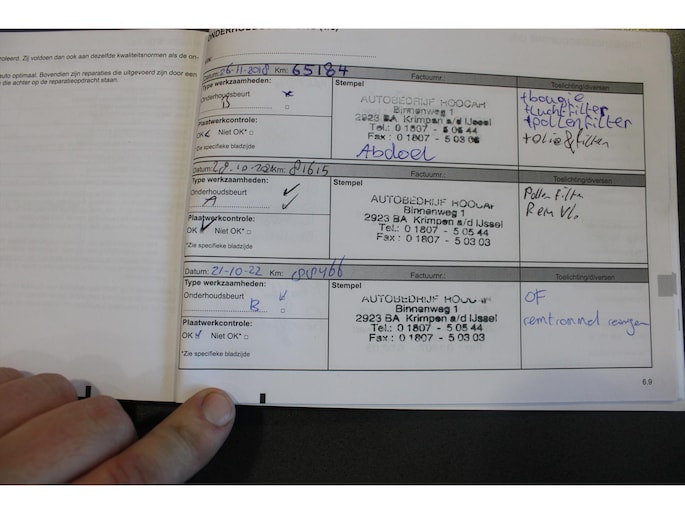 troleerd. Zij voldoen dan ook aan dezelfde kwaliteitsnormen als de on-
auto optimaal. Bovendien zijn reparaties die uitgevoerd zijn door een
die achter op de reparatieopdracht staan.
Datum: 26-11-2018 Km: 65184 Factuurnr.: Toelichting/diversen
Type werkzaamheden:
Onderhoudsbeurt
B
Plaatwerkcontrole:
OK Niet OK*
*Zie specifieke bladzijde
Stempel
AUTOBEDRIJF HOOGAH
Binnenweg 1
2923 BA Krimpen a/d IJssel
Tel.: 0 1807 - 5 05 44
Fax : 0 1807 - 5 03 03
Abdoel
+bougie
+luchtfilter
+pollenfilter
+olie&filter
Datum: Km: 81615 Factuurnr.: Toelichting/diversen
Type werkzaamheden:
Onderhoudsbeurt
A
Plaatwerkcontrole:
OK Niet OK*
*Zie specifieke bladzijde
Stempel
AUTOBEDRIJF
Binnenweg 1
2923 BA Krimpen a/d IJssel
Tel.: 0 1807 - 5 05 44
Fax : 0 1807 - 5 03 03
Pollen filter
Rem Vl.
Datum: 21-10-22 Km: Factuurnr.: Toelichting/diversen
Type werkzaamheden:
Onderhoudsbeurt
B
Plaatwerkcontrole:
OK Niet OK*
*Zie specifieke bladzijde
Stempel
AUTOBEDRIJF
Binnenweg 1
2923 BA Krimpen a/d IJssel
Tel.: 0 1807 - 5 05 44
Fax : 0 1807 - 5 03 03
OF
remtrommel
6.9